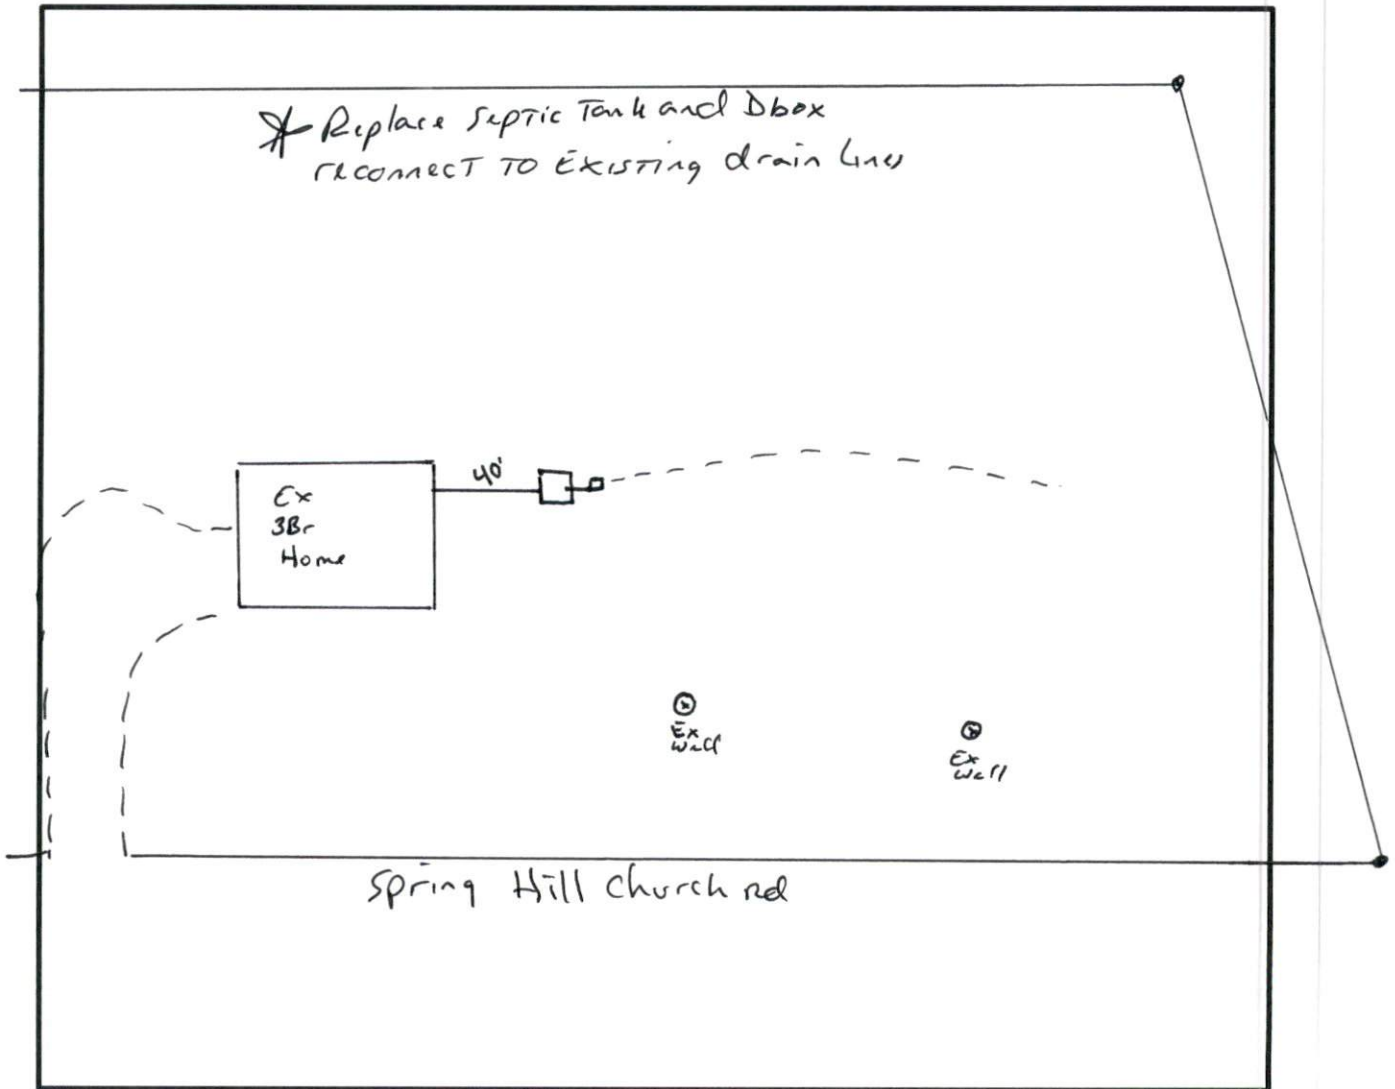 * Replace Septic Tank and Dbox
reconnect to Existing drain lines
40'
Ex
3Br
Home
Ex
well
Ex
well
Spring Hill Church Rd